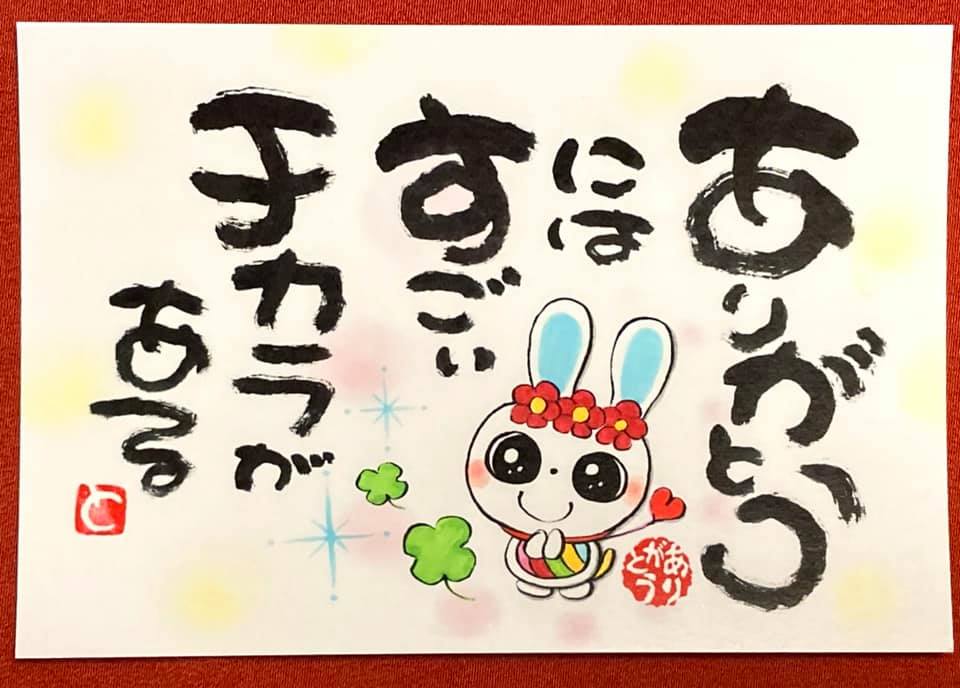 ありがとう
には
すごい
チカラが
ある
と
ありがとう